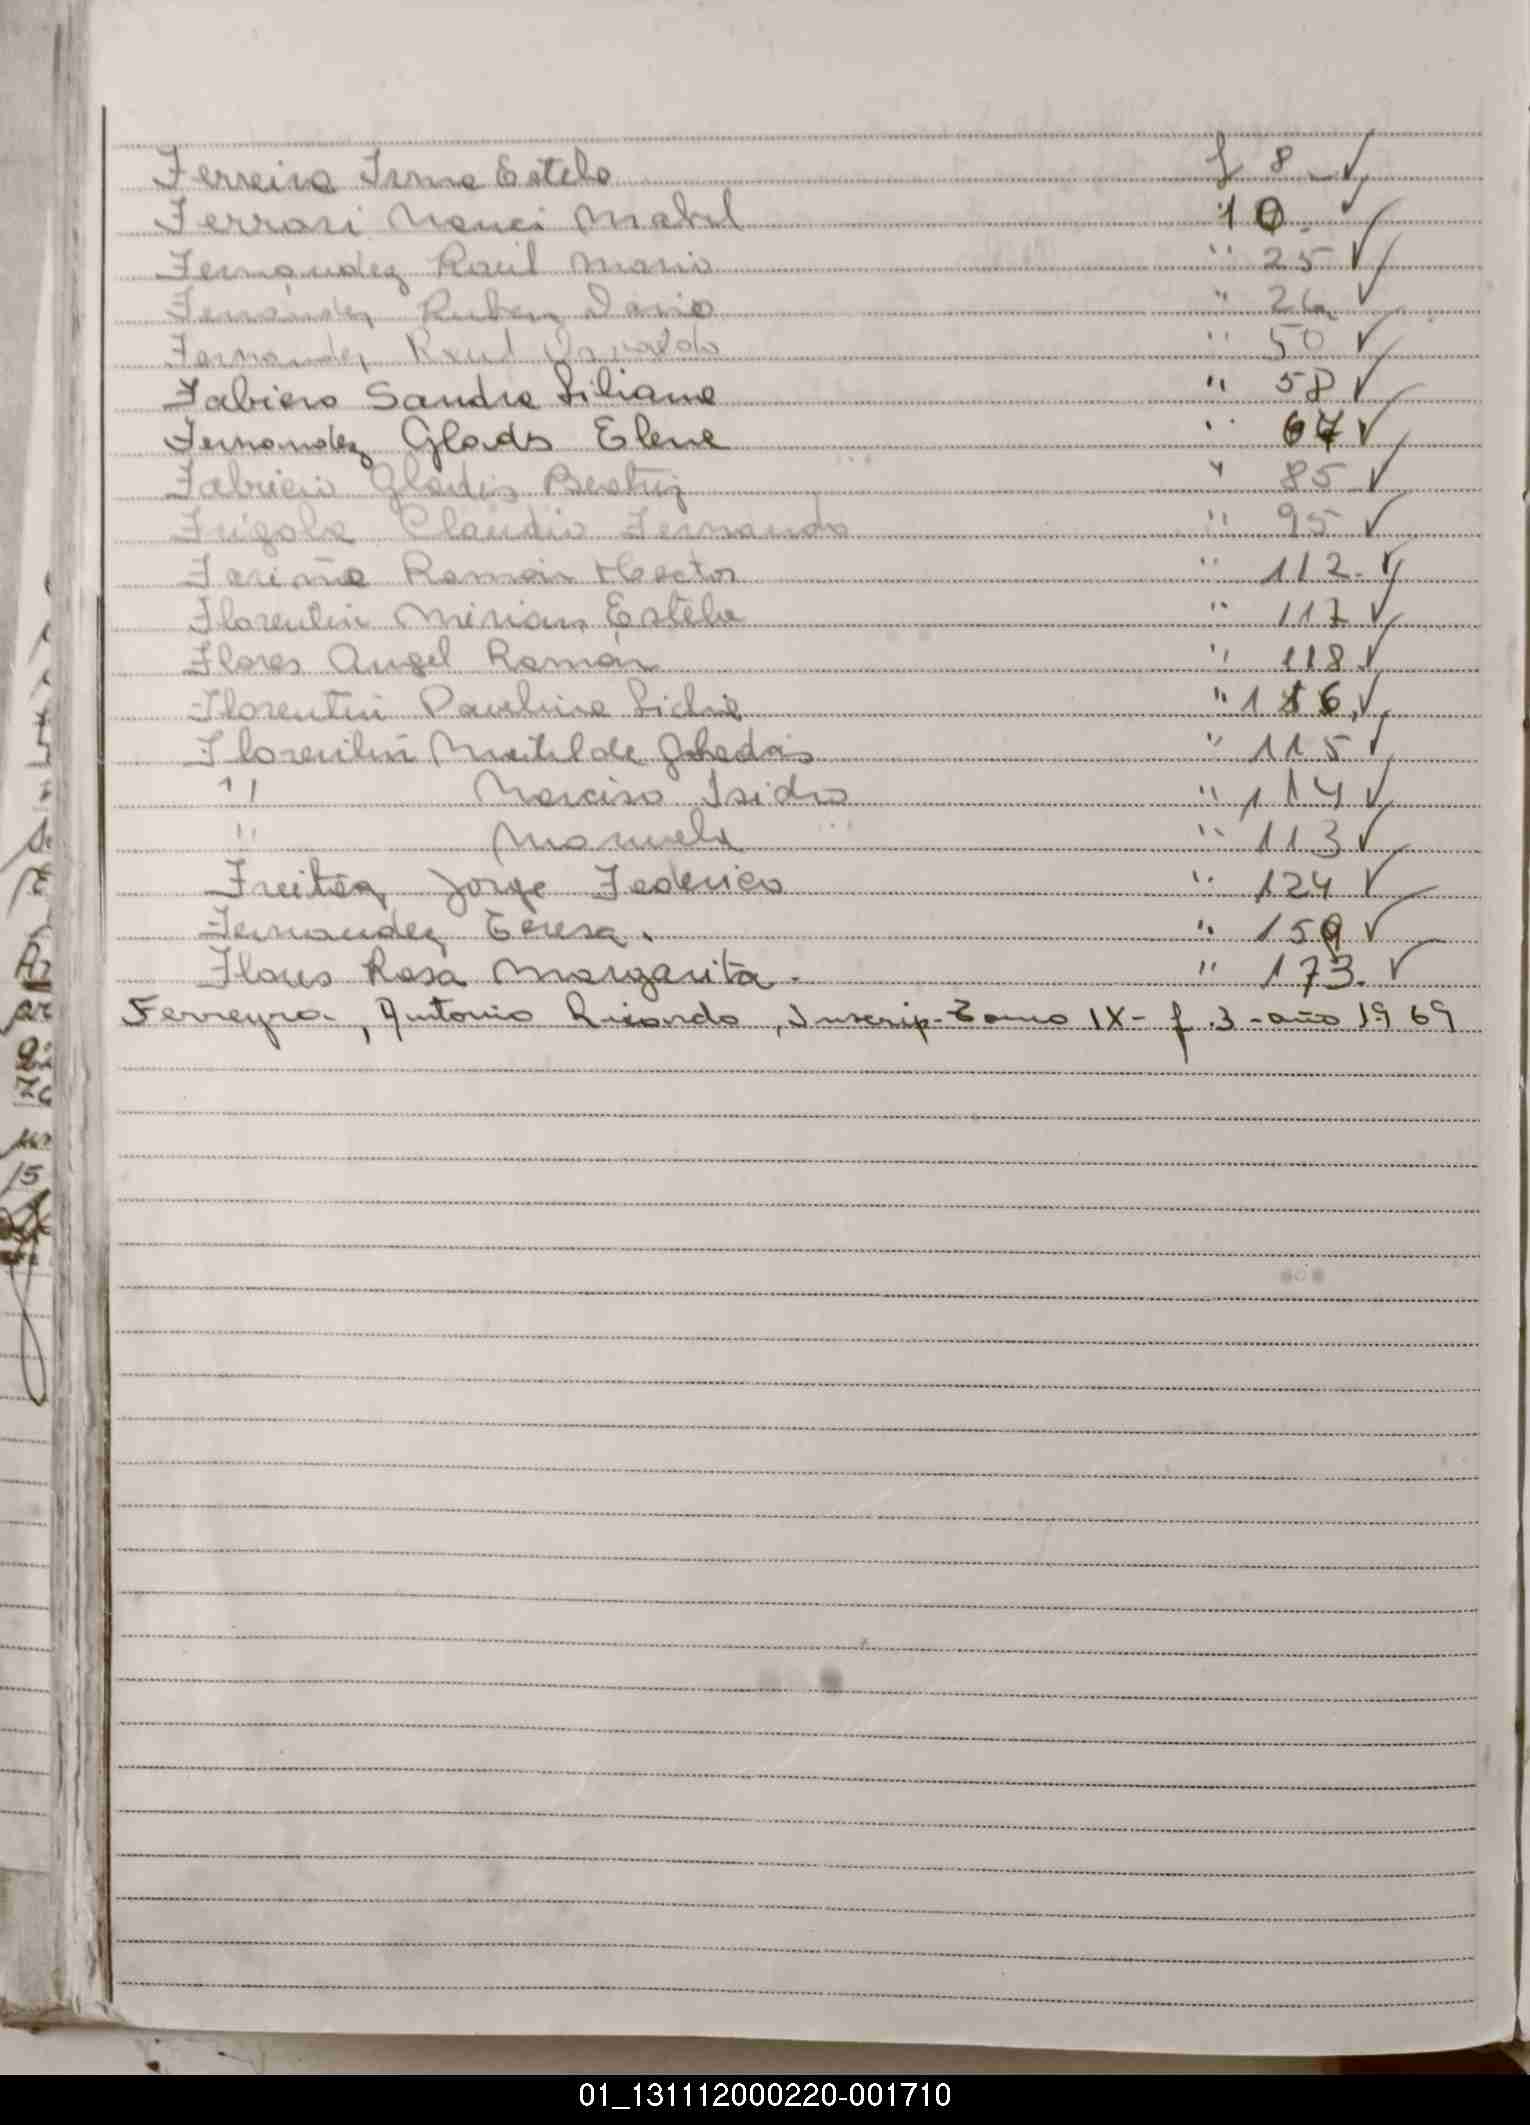 Ferreira Irma Estela f 8_ ✓
Ferrari Nanci Mabel " 10. ✓
Fernández Raúl Mario " 25 ✓
Fernández Ruben Dario " 26 ✓
Fernández Raul Osvaldo " 50 ✓
Fabiero Sandra Liliana " 58 ✓
Fernandez Glads Elena " 67 ✓
Fabricio Gladis Beatriz " 85 ✓
Frigola Claudio Fernando " 95 ✓
Fariña Ramón Hector " 112. ✓
Florentin Mirian Estela " 117 ✓
Flores Angel Román " 118 ✓
Florentin Paulina Lidia " 116 ✓
Florentin Matilde " 115 ✓
" Narciso Isidro " 114 ✓
" Manuela " 113 ✓
Freitez Jorge Federico " 124 ✓
Fernandez Teresa. " 159 ✓
Flores Rosa Margarita. " 173. ✓
Ferreyra, Antonio Ricardo, Inscrip- Tomo IX- f.3-año 1969
01_131112000220-001710